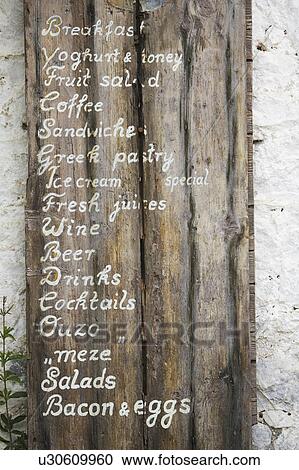 Breakfast
Yoghurt & honey
Fruit salad
Coffee
Sandwiches
Greek pastry
Ice cream special
Fresh juices
Wine
Beer
Drinks
Cocktails
Ouzo „
„meze
Salads
Bacon & eggs
FOTOSEARCH
u30609960 www.fotosearch.com